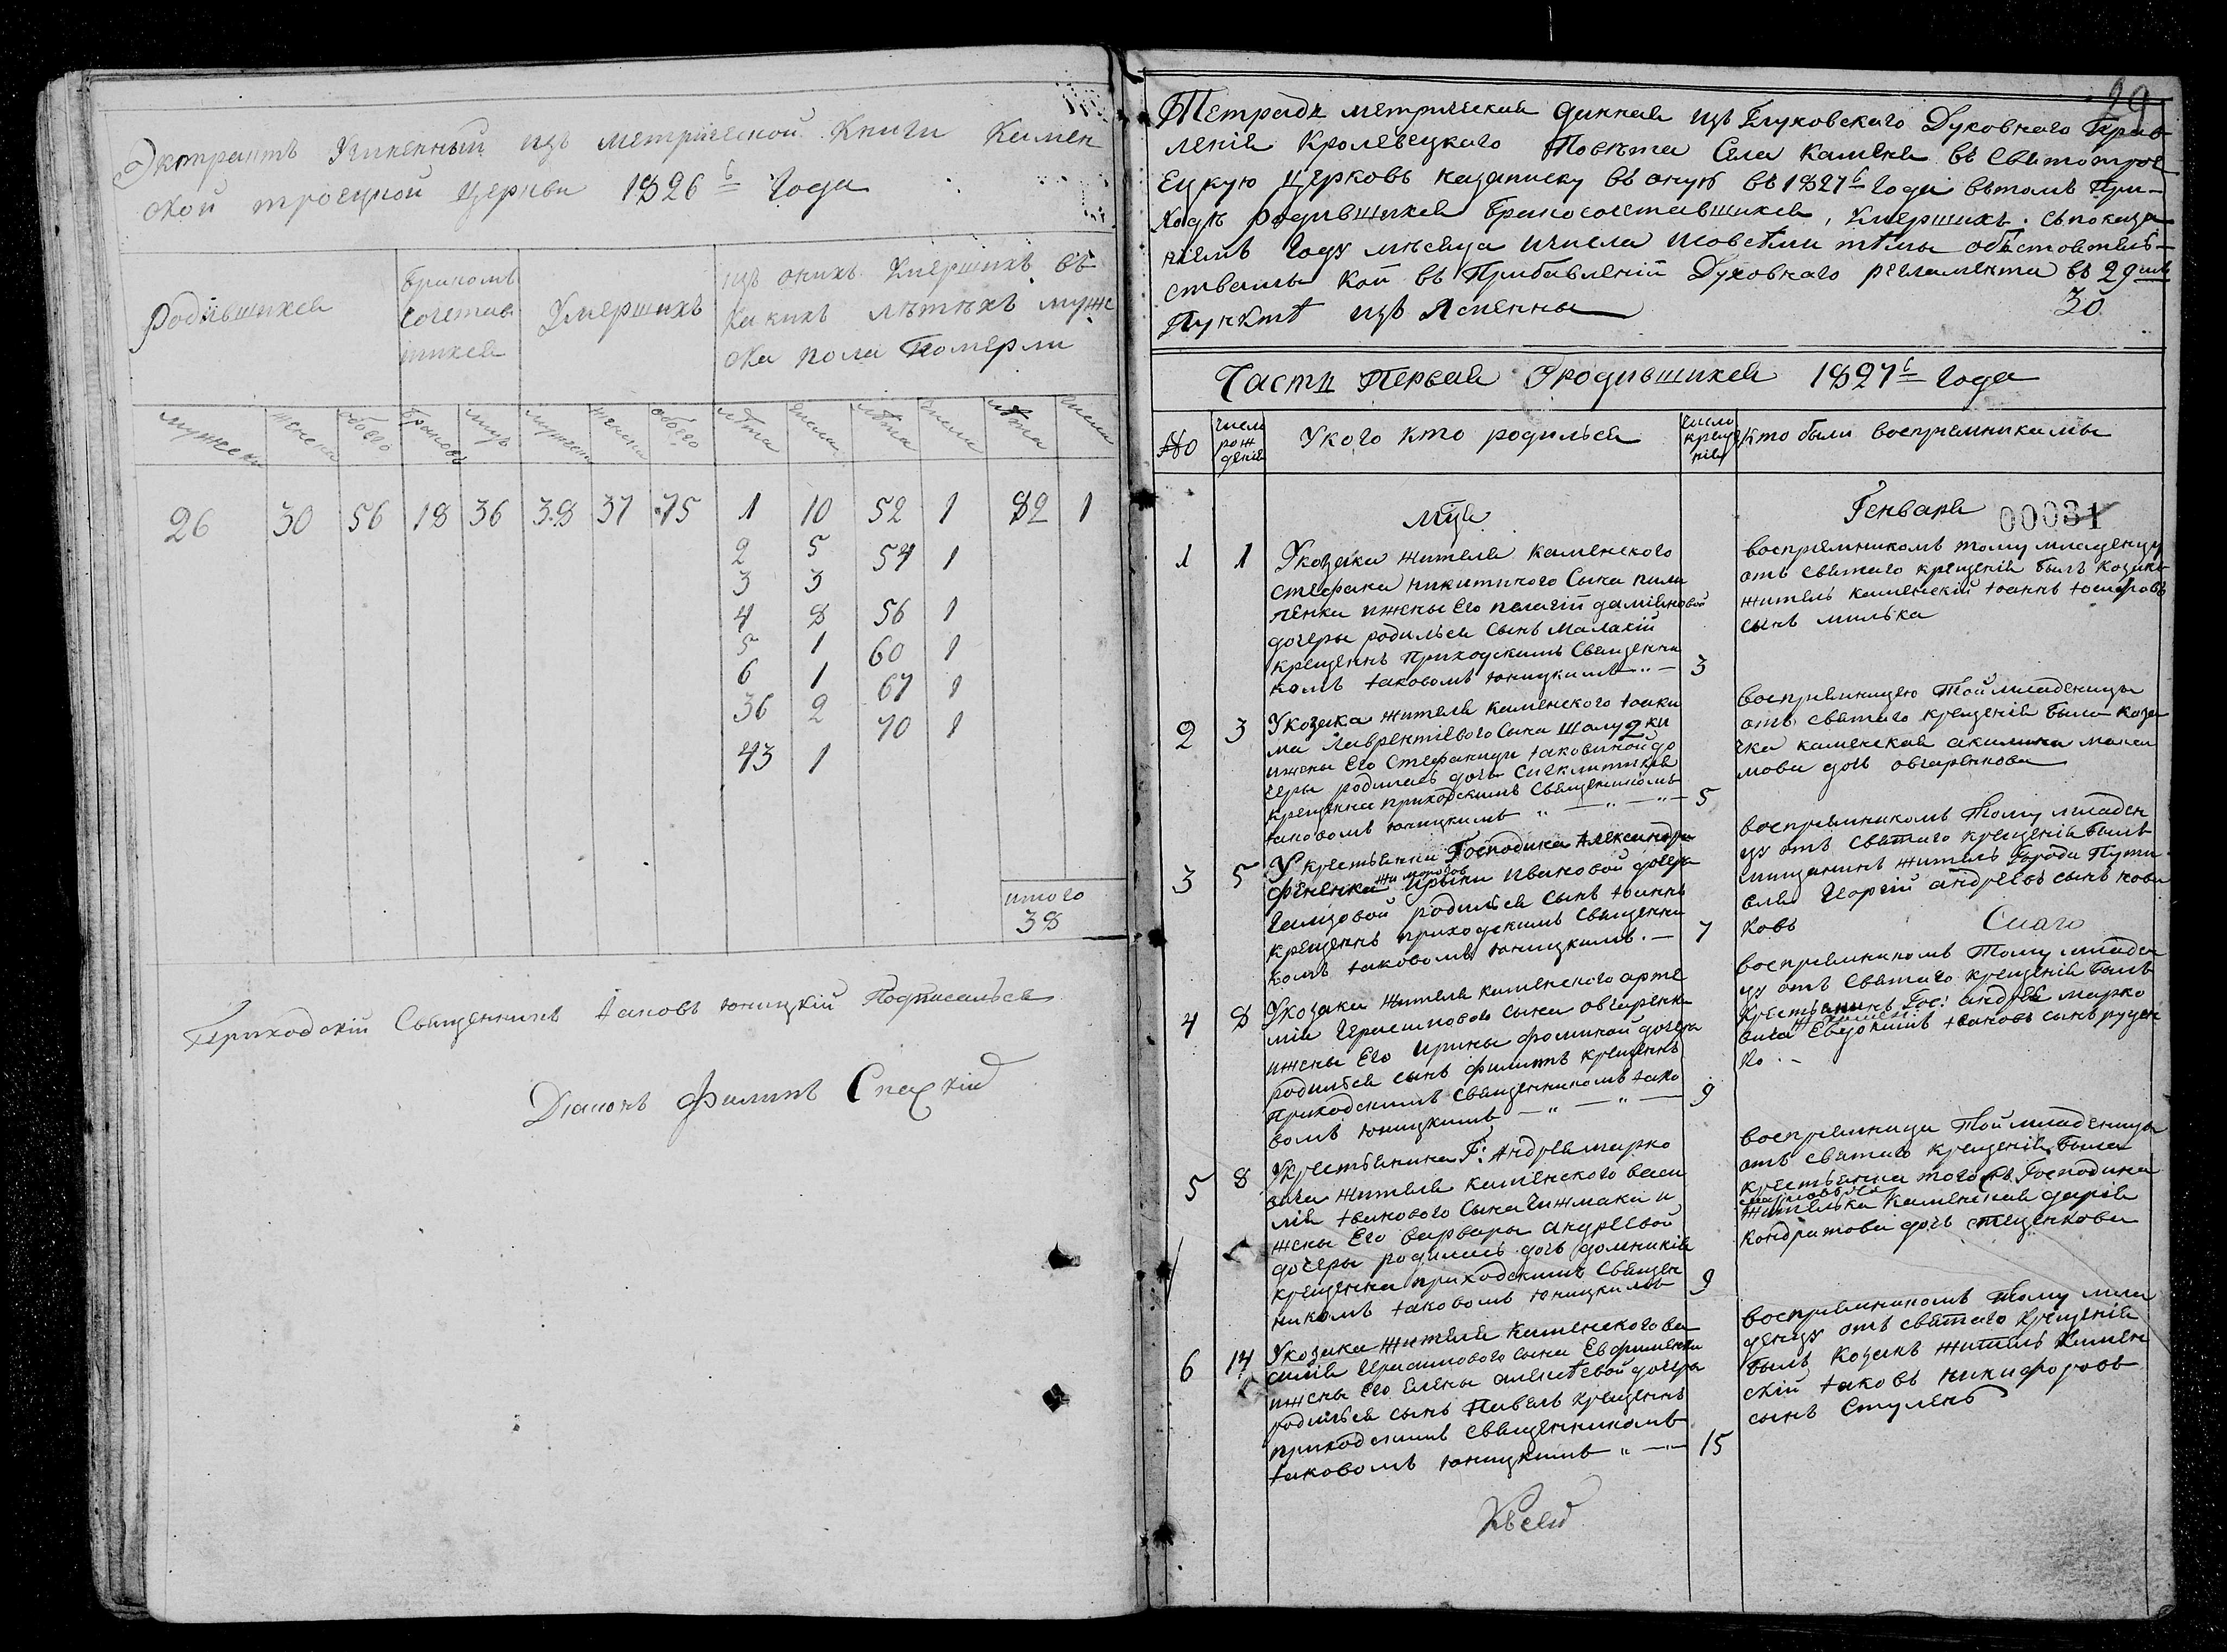 Экстрактъ Учиненный изъ метрической Книги Камен
ской троецкой Церкви 1826 Года
Родившихся
Бракомъ
Сочетав
шихся
Умершихъ
изъ онихъ Умершихъ въ
Какихъ лѣтѣхъ муже
ска пола Померли
мужеска
женска
обоего
Браковъ
лицъ
мужеска
женска
обоего
лѣта
числа
лѣта
числа
лѣта
числа
26 30 56 18 36 38 37 75 1 10 52 1 82 1
2 5 54 1
3 3
4 8 56 1
5 1 60 1
6 1 67 1
36 2 70 1
43 1
итого
38
Приходскій Священникъ Іаковъ Юницкій Подписался
Діаконъ Филипъ Спаскій
29
Тетрадь метрическая данная изъ Глуховского Духовного Прав
ленія Кролевецкого Повѣта Села Каменя въ Святотрое
Ецкую Церковь на записку въ оную въ 1827 Года въ томъ При-
ходѣ родившихся Бракосочетавшихся, Умершихъ. съ показа
ніемъ Году мѣсяца и числа и совсѣми тѣмы обстоятель-
ствамы кои въ Прибавленіи Духовного регламента въ 29
Пунктѣ изъ Яснены
30
Часть Первая О родившихся 1827 Года
№
число
рож
денія
У кого кто родился
число
креще
нія
Кто были воспріемникамы
Генваря
00031
1 1 У козака жителя каменского
стефана никитиного Сына пили
пенка и жены Его пелагіи даміяновой
дочеры родился Сынъ Малахій
крещеннъ Приходскимъ Священни
комъ Іаковомъ Юницкимъ 3
воспріемникомъ тому младенцу
отъ святаго крещенія былъ козакъ
житель каменскій Іоаннъ Іосифовъ
сынъ милька
2 3 У козака жителя каменского Іоаки
ма Лаврентіевого Сына
и жены Его Стефаниды Іаковиной до
черы родилась дочь Сигклитикія
крещенна приходскимъ Священникомъ
Іаковомъ Юницкимъ 5
воспріемницею Той младеницы
отъ святаго крещенія была коза
чка каменская акилина макси
мова дочь овчаренкова
3 5 У крестьянки Господина Александра
Ирыны Ивановой дочеры
родился сынъ Іоаннъ
крещеннъ приходскимъ Священни
комъ Іаковомъ Юницкимъ 7
воспріемникомъ Тому младен
цу отъ Святаго крещенія былъ
мищанинъ житель Города Пути
вля Георгій андреевъ сынъ нови
ковъ
4 8 У козака жителя каменского арте
мія Герасимового сына овчаренка
и жены Его Ирины фоминой дочеры
родился сынъ филипъ крещеннъ
Приходскимъ Священникомъ Іако
вомъ Юницкимъ 9
воспріемникомъ Тому младен
цу отъ Святаго крещенія былъ
Крестьянинъ Гос: андрея марко
вича Евдокимъ Івановъ сынъ руден
ко
5 8 У крестьянина Г: Андрея марко
вича жителя каменского васи
лія Іванового Сына Чижмака и
жены Его варвары андреевой
дочеры родилась дочь домникія
крещенна приходскимъ Священ
никомъ Іаковомъ Юницкимъ 9
воспріемница Той младеницы
отъ святаго крещенія была
крестьянка того жъ Господина
марковича
жителька каменская дарія
кондратова дочь стеценкова
6 14 У козака жителя каменского ва
силія Герасимового сына Евфименка
и жены Его Елены алексѣевой дочеры
родился сынъ Павелъ крещеннъ
приходскимъ священникомъ
Іаковомъ Юницкимъ 15
воспріемникомъ Тому мла
денцу отъ святаго крещенія
былъ козакъ житель камен
скій Іаковъ никифоровъ
сынъ Ступень